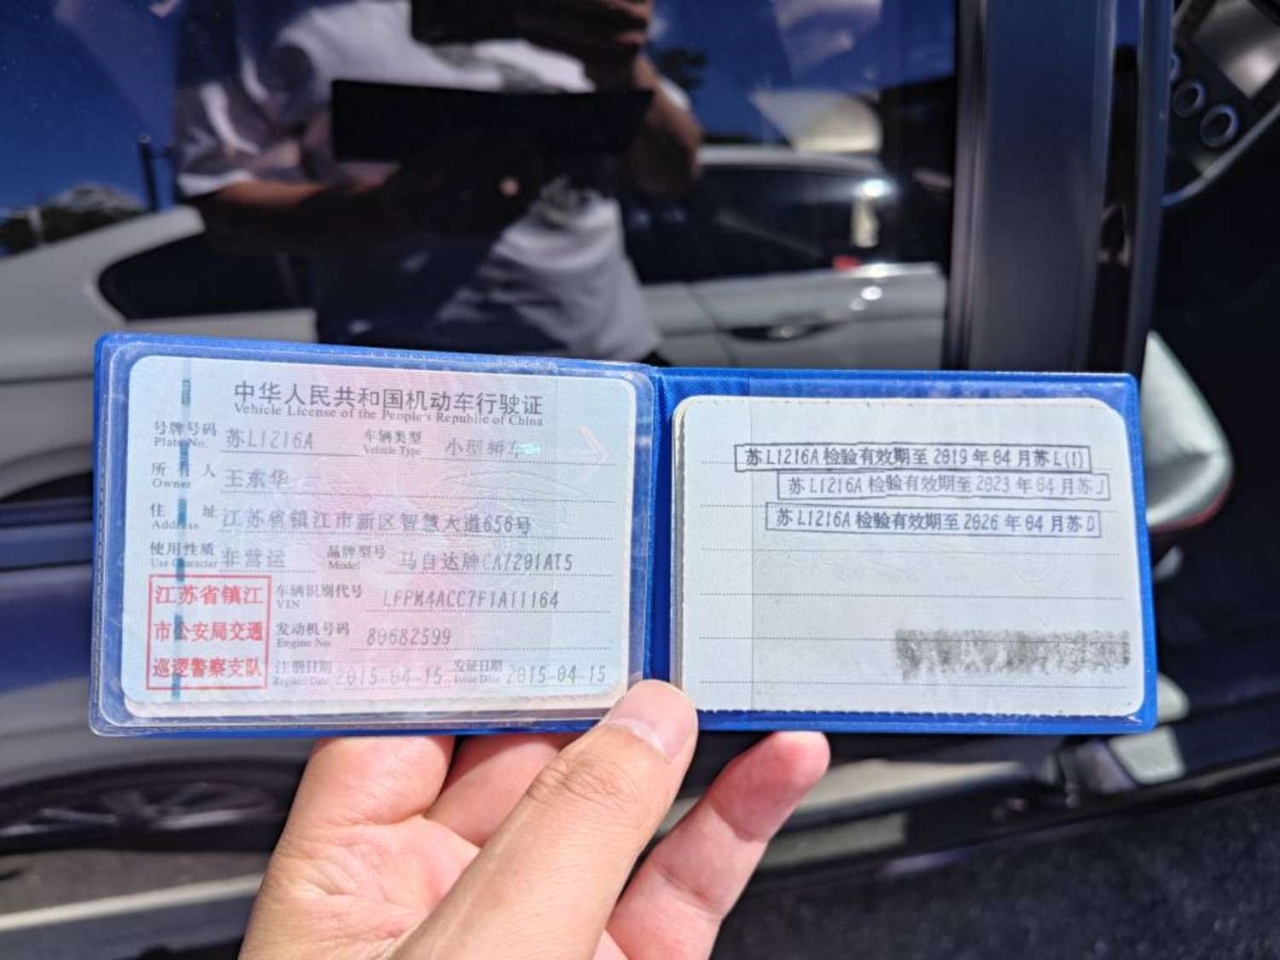 中华人民共和国机动车行驶证
Vehicle License of the People's Republic of China
号牌号码 苏L1216A 车辆类型 小型轿车
Plate No. Vehicle Type
所有人 王东华
Owner
住址 江苏省镇江市新区智慧大道656号
Address
使用性质 非营运 品牌型号 马自达牌CA7201AT5
Use Character Model
江苏省镇江
市公安局交通
巡逻警察支队
车辆识别代号 LFPM4ACC7F1A11164
VIN
发动机号码 80682599
Engine No.
注册日期 2015-04-15 发证日期 2015-04-15
Register Date Issue Date
苏L1216A 检验有效期至 2019 年 04 月 苏L(1)
苏L1216A 检验有效期至 2023 年 04 月 苏J
苏L1216A 检验有效期至 2026 年 04 月 苏D